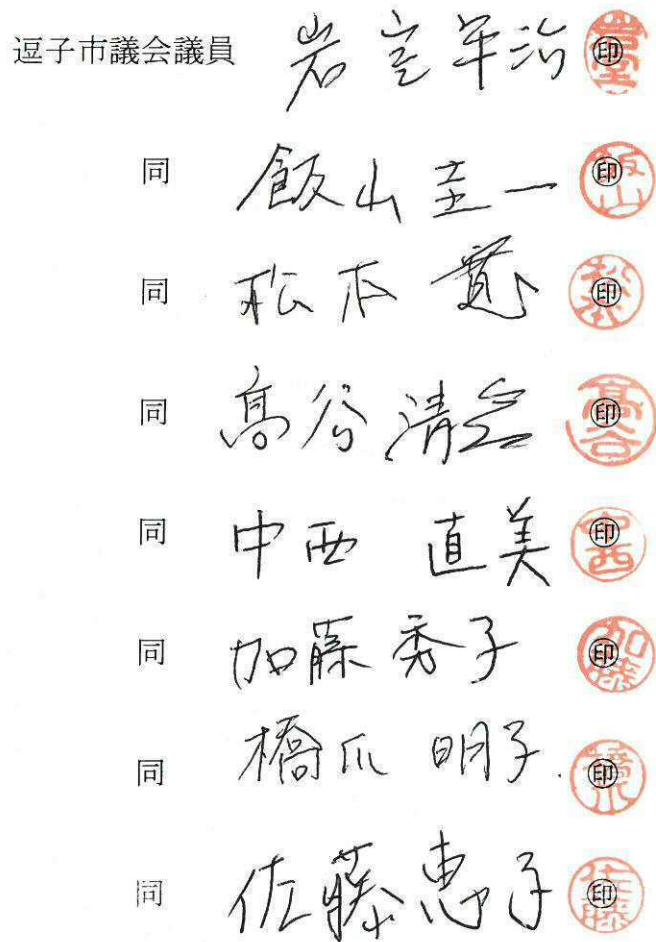 逗子市議会議員 岩室年治 ㊞
同 飯山圭一 ㊞
同 松本寛 ㊞
同 髙谷清彦 ㊞
同 中西 直美 ㊞
同 加藤秀子 ㊞
同 橋爪 明子 ㊞
同 佐藤恵子 ㊞